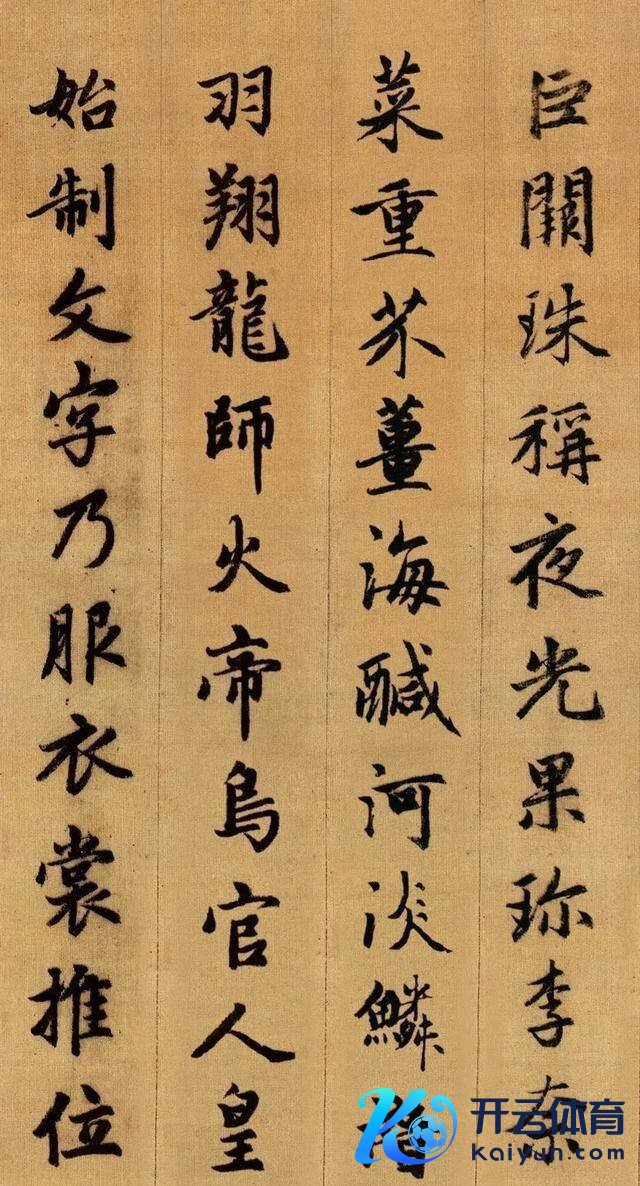 巨闕珠稱夜光果珎李柰
菜重芥薑海醎河淡鱗
羽翔龍師火帝鳥官人皇
始制文字乃服衣裳推位
开云体育
kaiyun.com